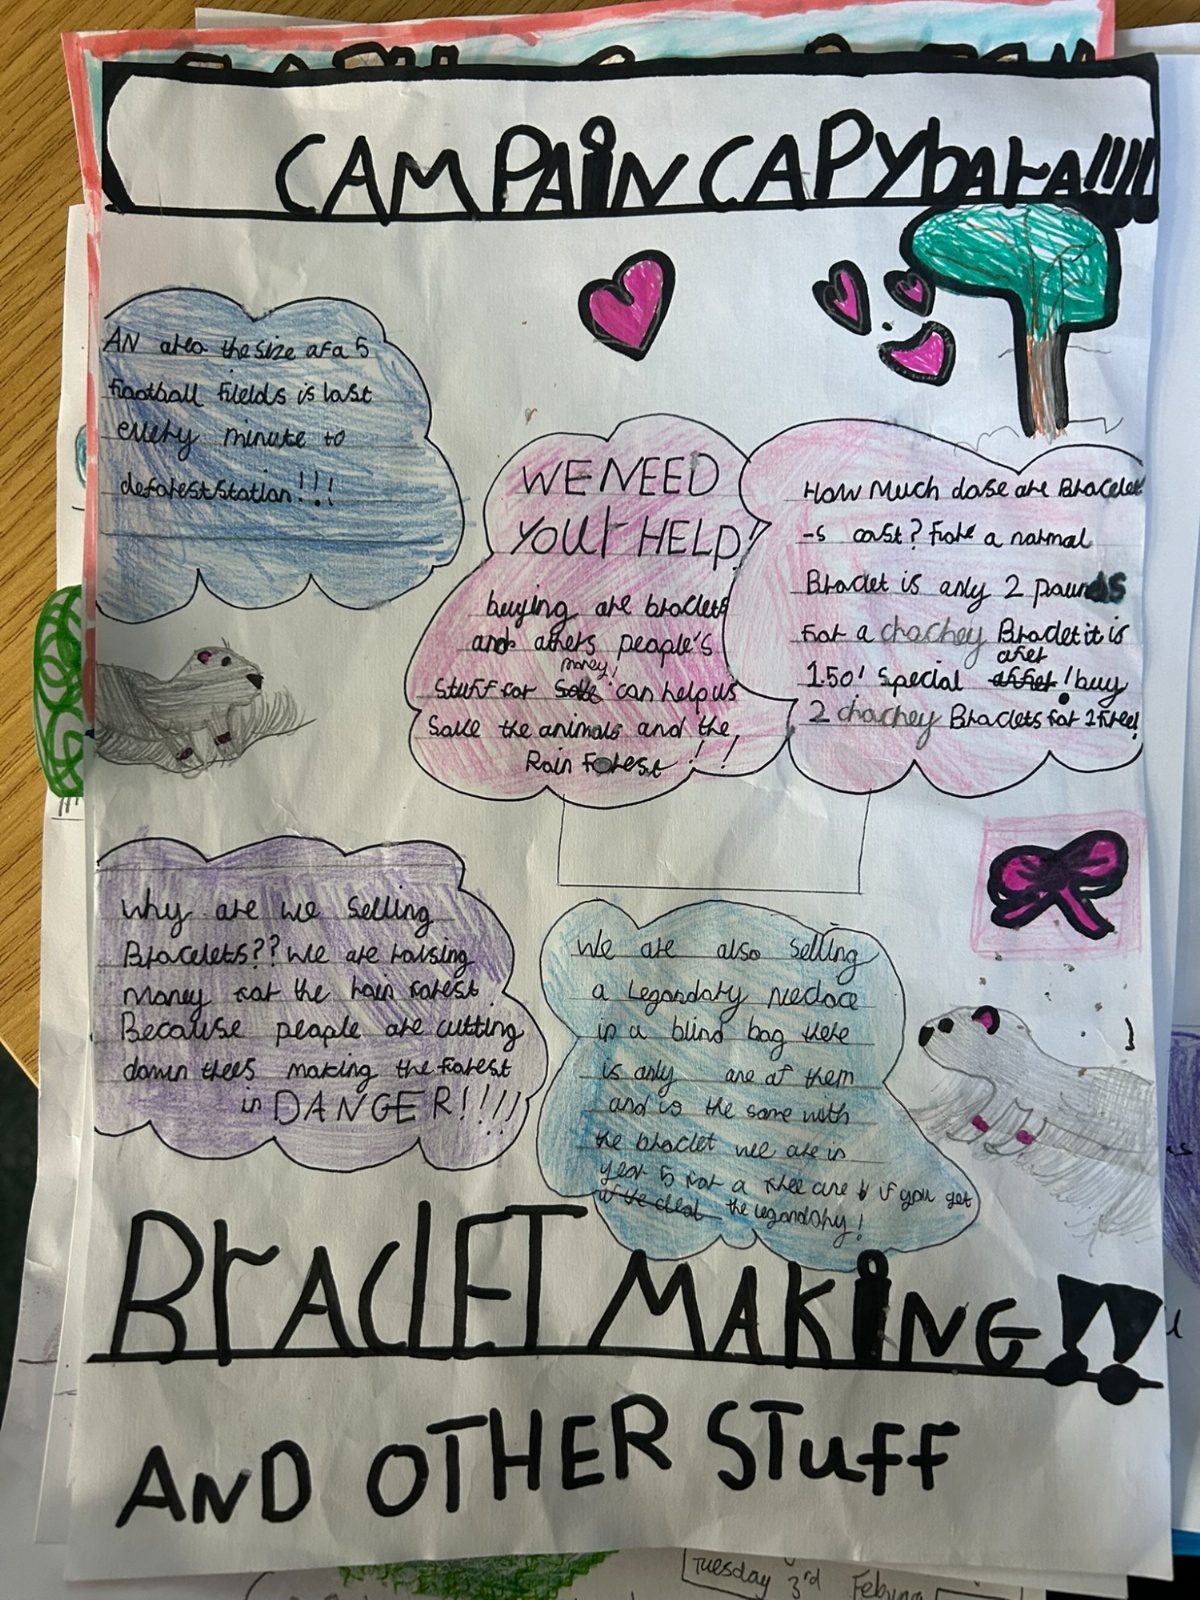 CAMPAiN CAPYbArA!!!!
AN area the size of a 5
football fields is lost
every minute to
deforeststation!!!
WE NEED
YOUr HELP!
buying are braclets
and others people's
money!
stuff for can help us
save the animals and the
Rain forest!!
How Much dose are Bracelet
-s cost? fore a normal
Braclet is only 2 pounds
for a chachey Braclet it is
1.50! Special offer! buy
2 chachey Braclets for 1 free!
Why are we selling
Bracelets?? we are raising
money for the rain forest.
Because people are cutting
down trees making the forest
in DANGER!!!!
We are also selling
a Legandary necloce
in a blind bag there
is only one of them
and is the same with
the braclet we are in
year 5 for a free one if you get
the legandary!
BrAClET MAKiNG!!
AND OTHER STuff
Tuesday 3rd